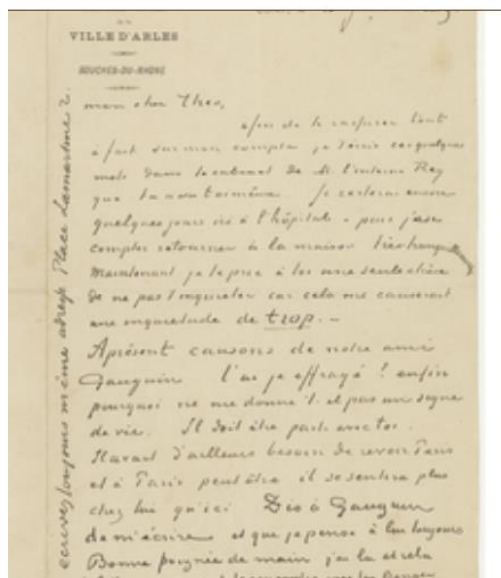 VILLE D'ARLES
BOUCHES-DU-RHÔNE
mon cher Theo,
afin de te rassurer tout
à fait sur mon compte je t'écris ces quelques
mots dans le cabinet de M. l'interne Rey
que tu as vu toi même. Je resterai encore
quelques jours ici à l'hôpital - puis j'ose
compter retourner à la maison très tranquillement
Maintenant je te prie à toi une seule chose
de ne pas t'inquieter car cela me causerait
une inquietude de trop.-
Apresent causons de notre ami
Gauguin l'ai je effrayé! enfin
pourquoi ne me donne t-il pas un signe
de vie. Il doit être parti avec toi.
Il avait d'ailleurs besoin de revoir Paris
et à Paris peut être il se sentira plus
chez lui qu'ici. Dis à Gauguin
de m'écrire et que je pense à lui toujours
Bonne poignée de main j'ai lu et relu
ecrivez toujours même adresse Place Lamartine 2.